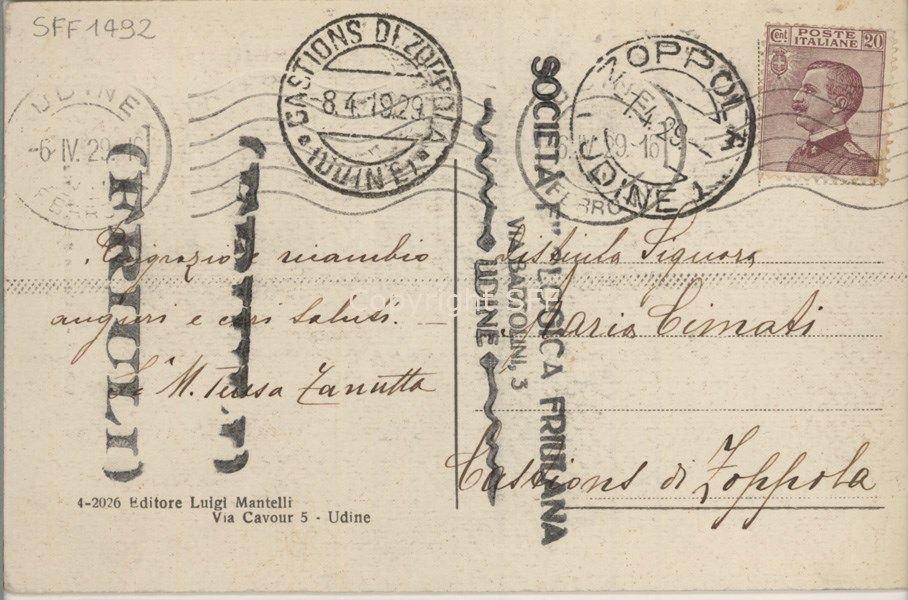 SFF 1492
UDINE
-6 IV. 29. 16
FERRO
CASTIONS DI ZOPPOLA
-8.4.1929
(UDINE)
ZOPPOLA
UDINE
16
FERRO
POSTE
ITALIANE
Cent. 20
(FRIULI)
SOCIETÀ FILOLOGICA FRIULANA
VIA BARTOLINI, 3
UDINE
Ringrazio e ricambio
auguri e cari saluti. —
M. Teresa Zanutta
Distinta Signora
Maria Cimati
Castions di Zoppola
4-2026 Editore Luigi Mantelli
Via Cavour 5 - Udine
Copyright SFF